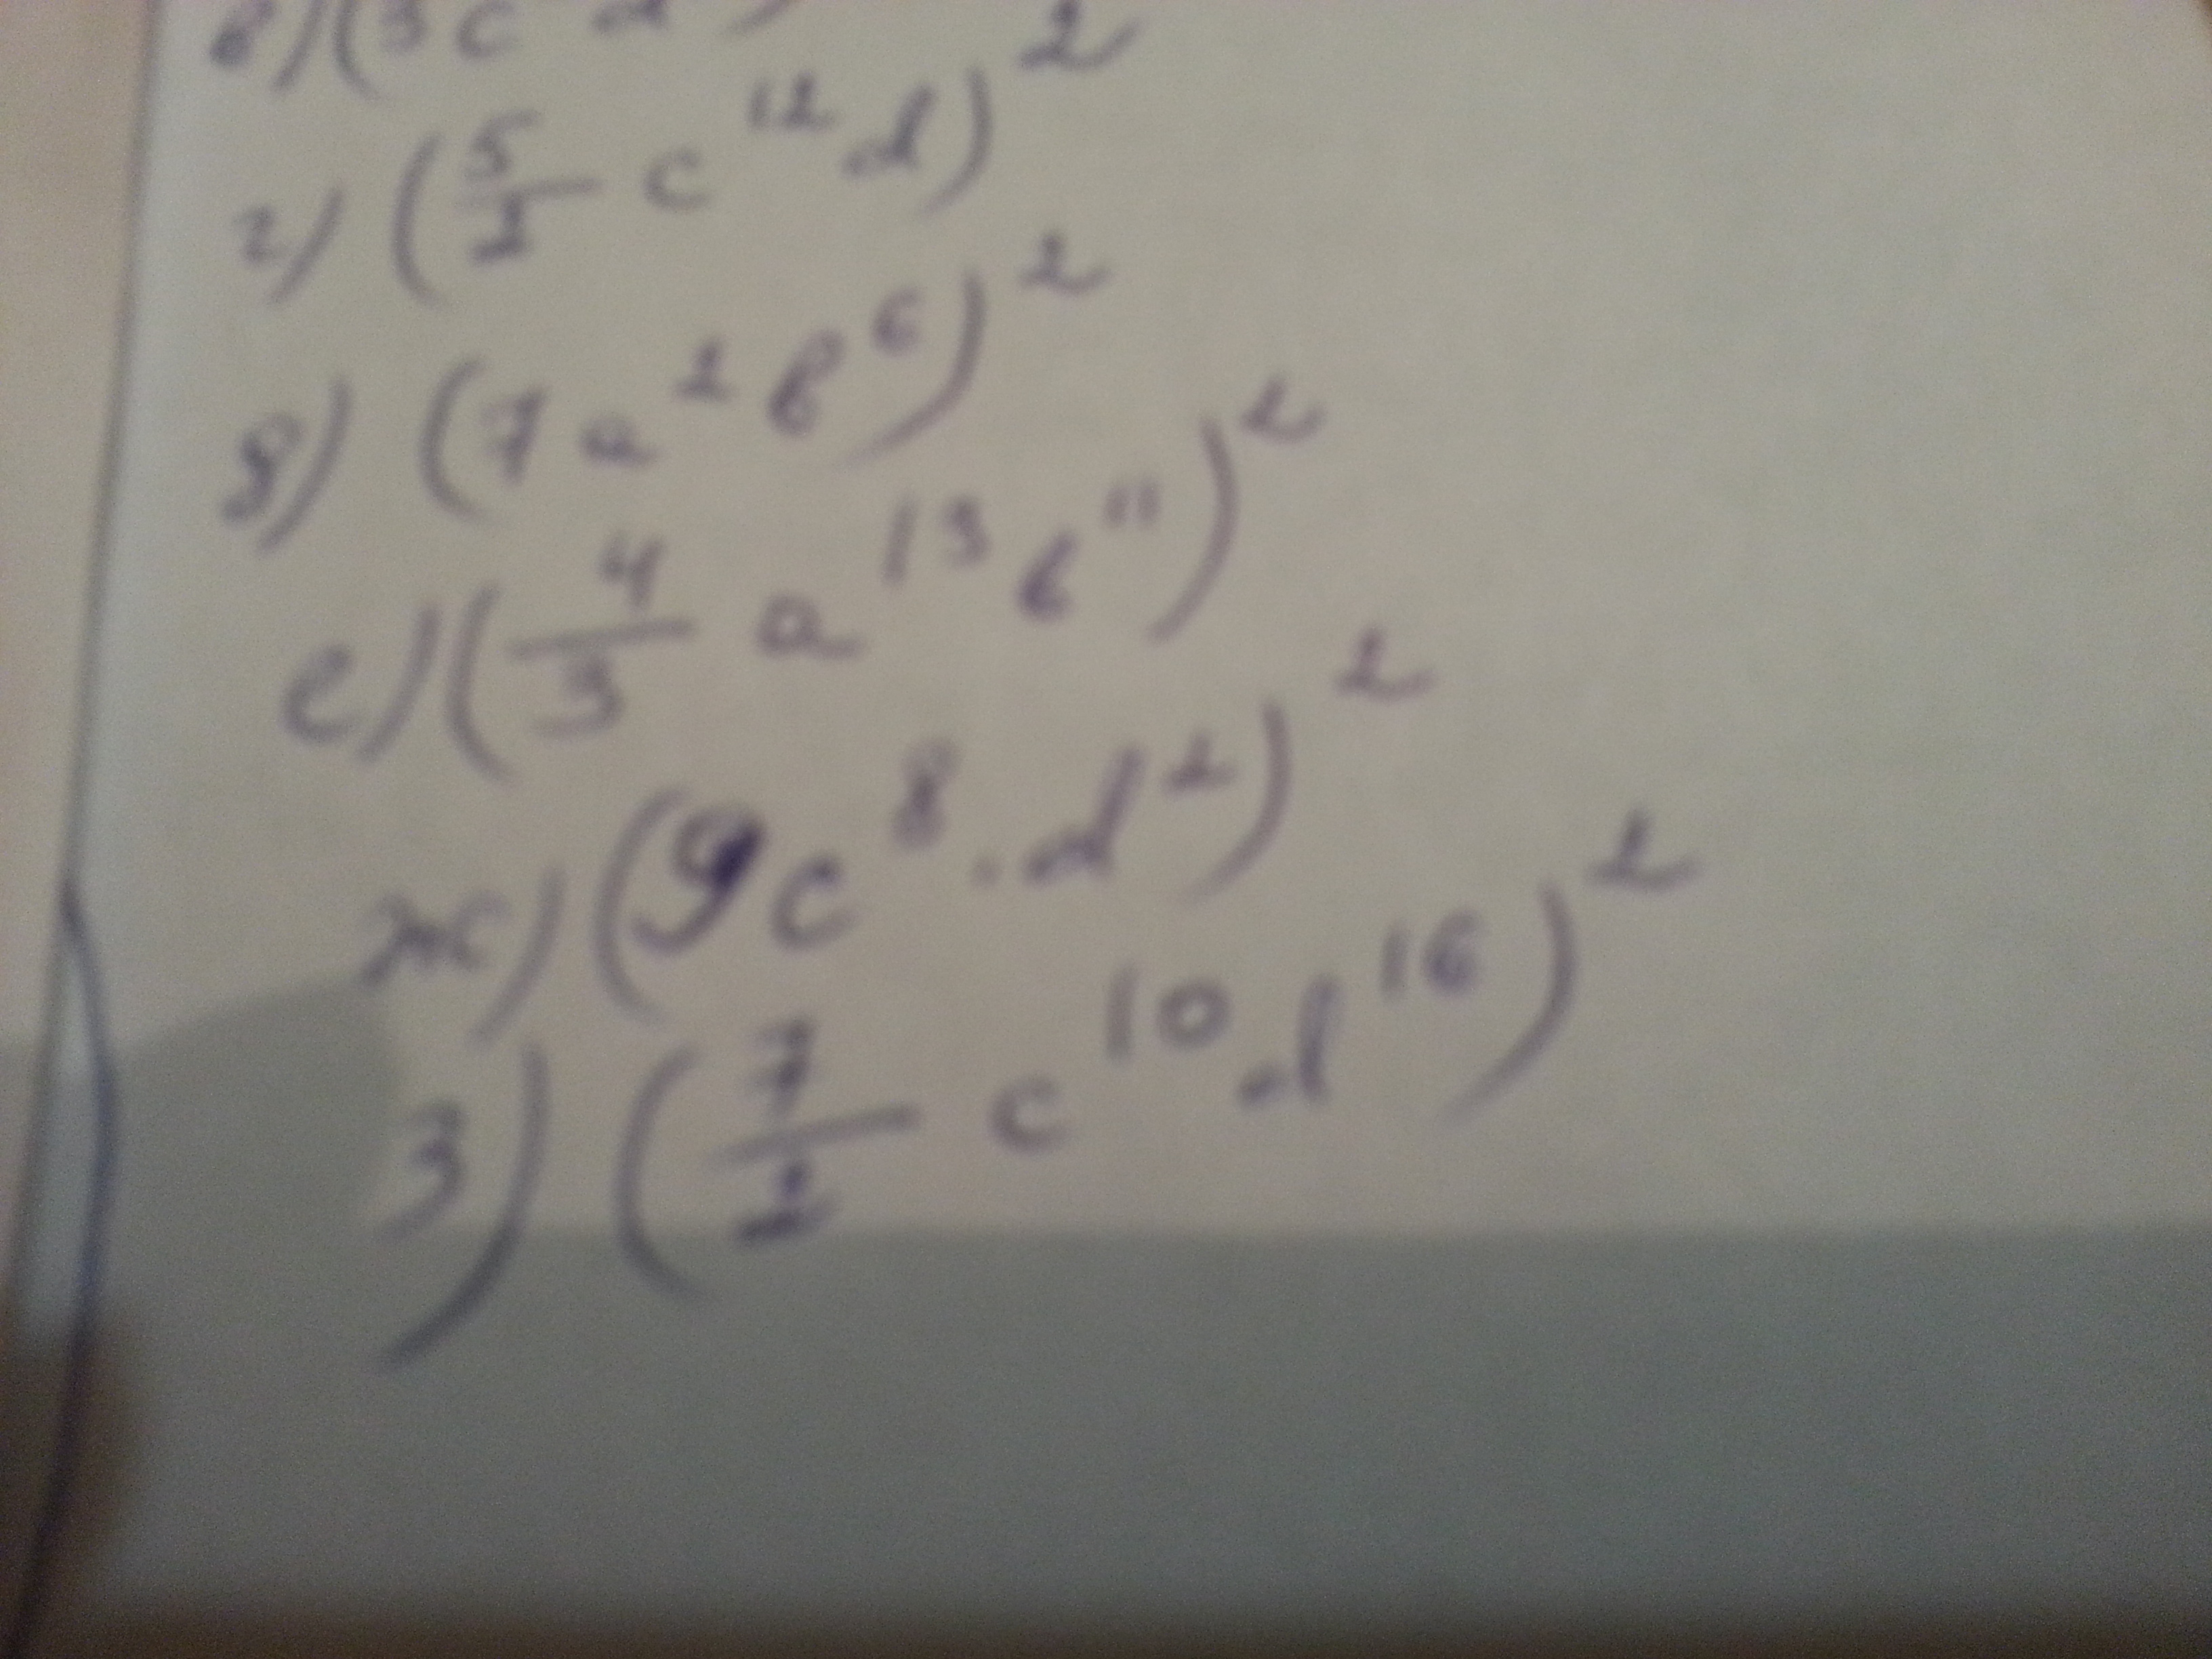 в) (3c d)
г) (5/2 c^12 d)^2
д) (7a^2 b^6)^2
е) (4/3 a^13 b^11)^2
ж) (9c^8 · d^2)^2
з) (7/2 c^10 d^16)^2